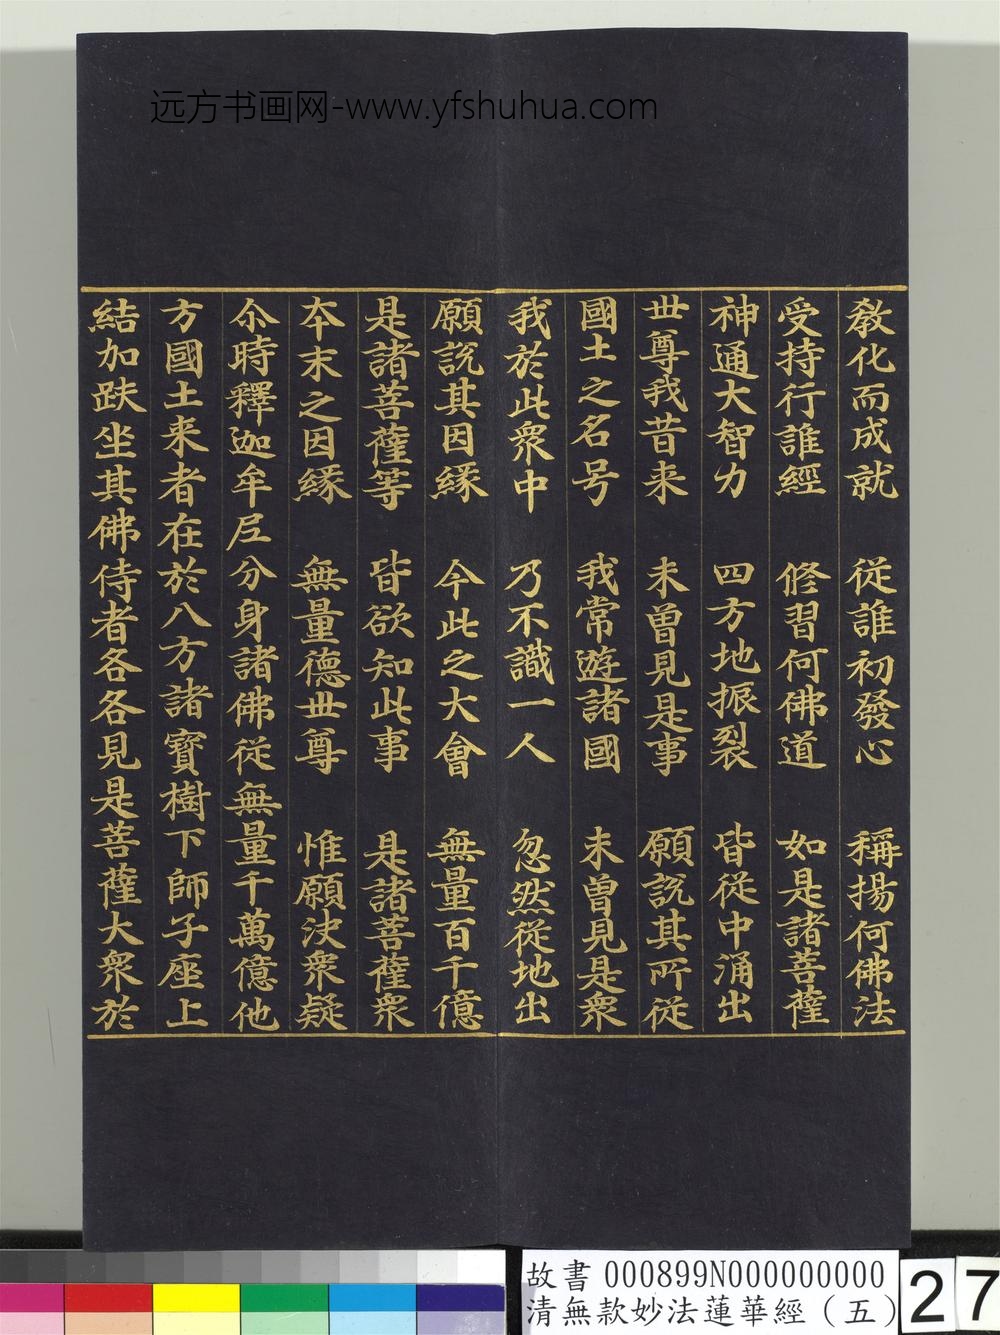 远方书画网-www.yfshuhua.com
教化而成就 従誰初發心 稱揚何佛法
受持行誰經 修習何佛道 如是諸菩薩
神通大智力 四方地振裂 皆從中涌出
世尊我昔来 未曽見是事 願說其所從
國土之名号 我常遊諸國 未曽見是衆
我於此衆中 乃不識一人 忽然從地出
願說其因緣 今此之大會 無量百千億
是諸菩薩等 皆欲知此事 是諸菩薩衆
夲末之因緣 無量德世尊 惟願决衆疑
尒時釋迦牟尼分身諸佛從無量千萬億他
方國土来者在於八方諸寶樹下師子座上
結加趺坐其佛侍者各各見是菩薩大衆於
故書 000899N000000000
清無款妙法蓮華經(五)
27